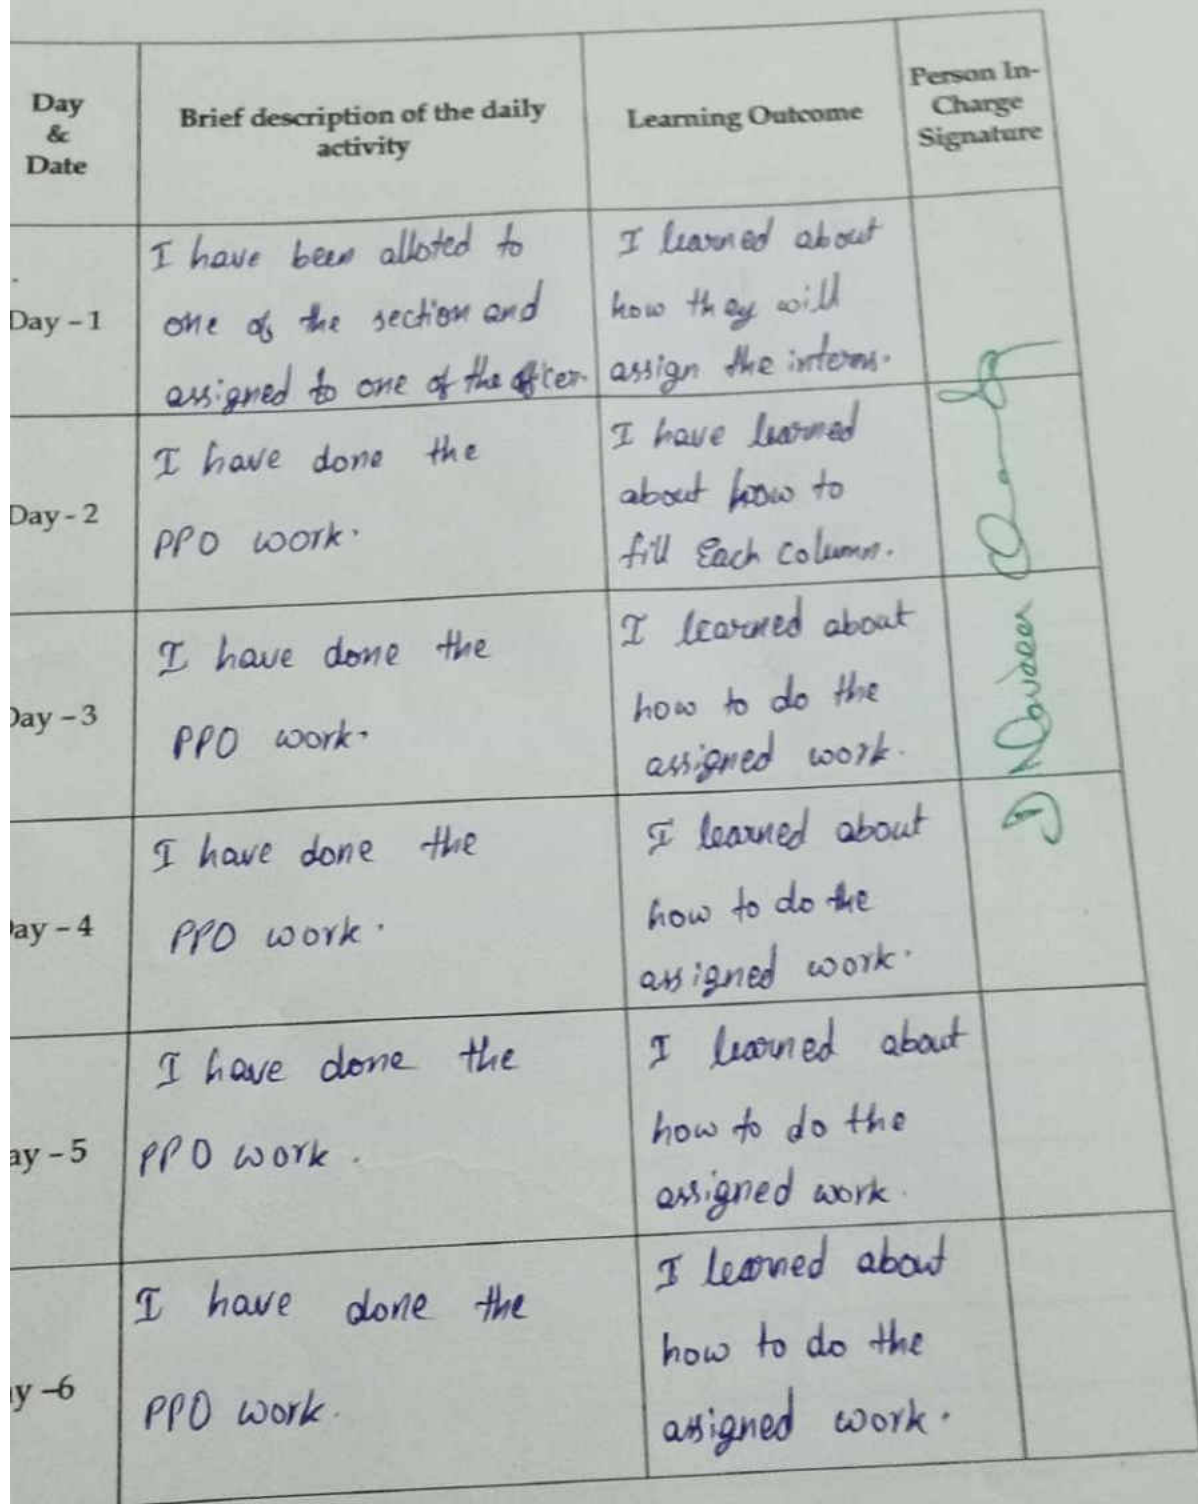 Day
&
Date
Brief description of the daily
activity
Learning Outcome
Person In-
Charge
Signature
Day - 1
I have been alloted to
one of the section and
assigned to one of the
I learned about
how they will
assign the interns.
Day - 2
I have done the
PPO work.
I have learned
about how to
fill Each column.
Day - 3
I have done the
PPO work.
I learned about
how to do the
assigned work.
ay - 4
I have done the
PPO work.
I learned about
how to do the
assigned work.
ay - 5
I have done the
PPO work.
I learned about
how to do the
assigned work.
y -6
I have done the
PPO work.
I learned about
how to do the
assigned work.